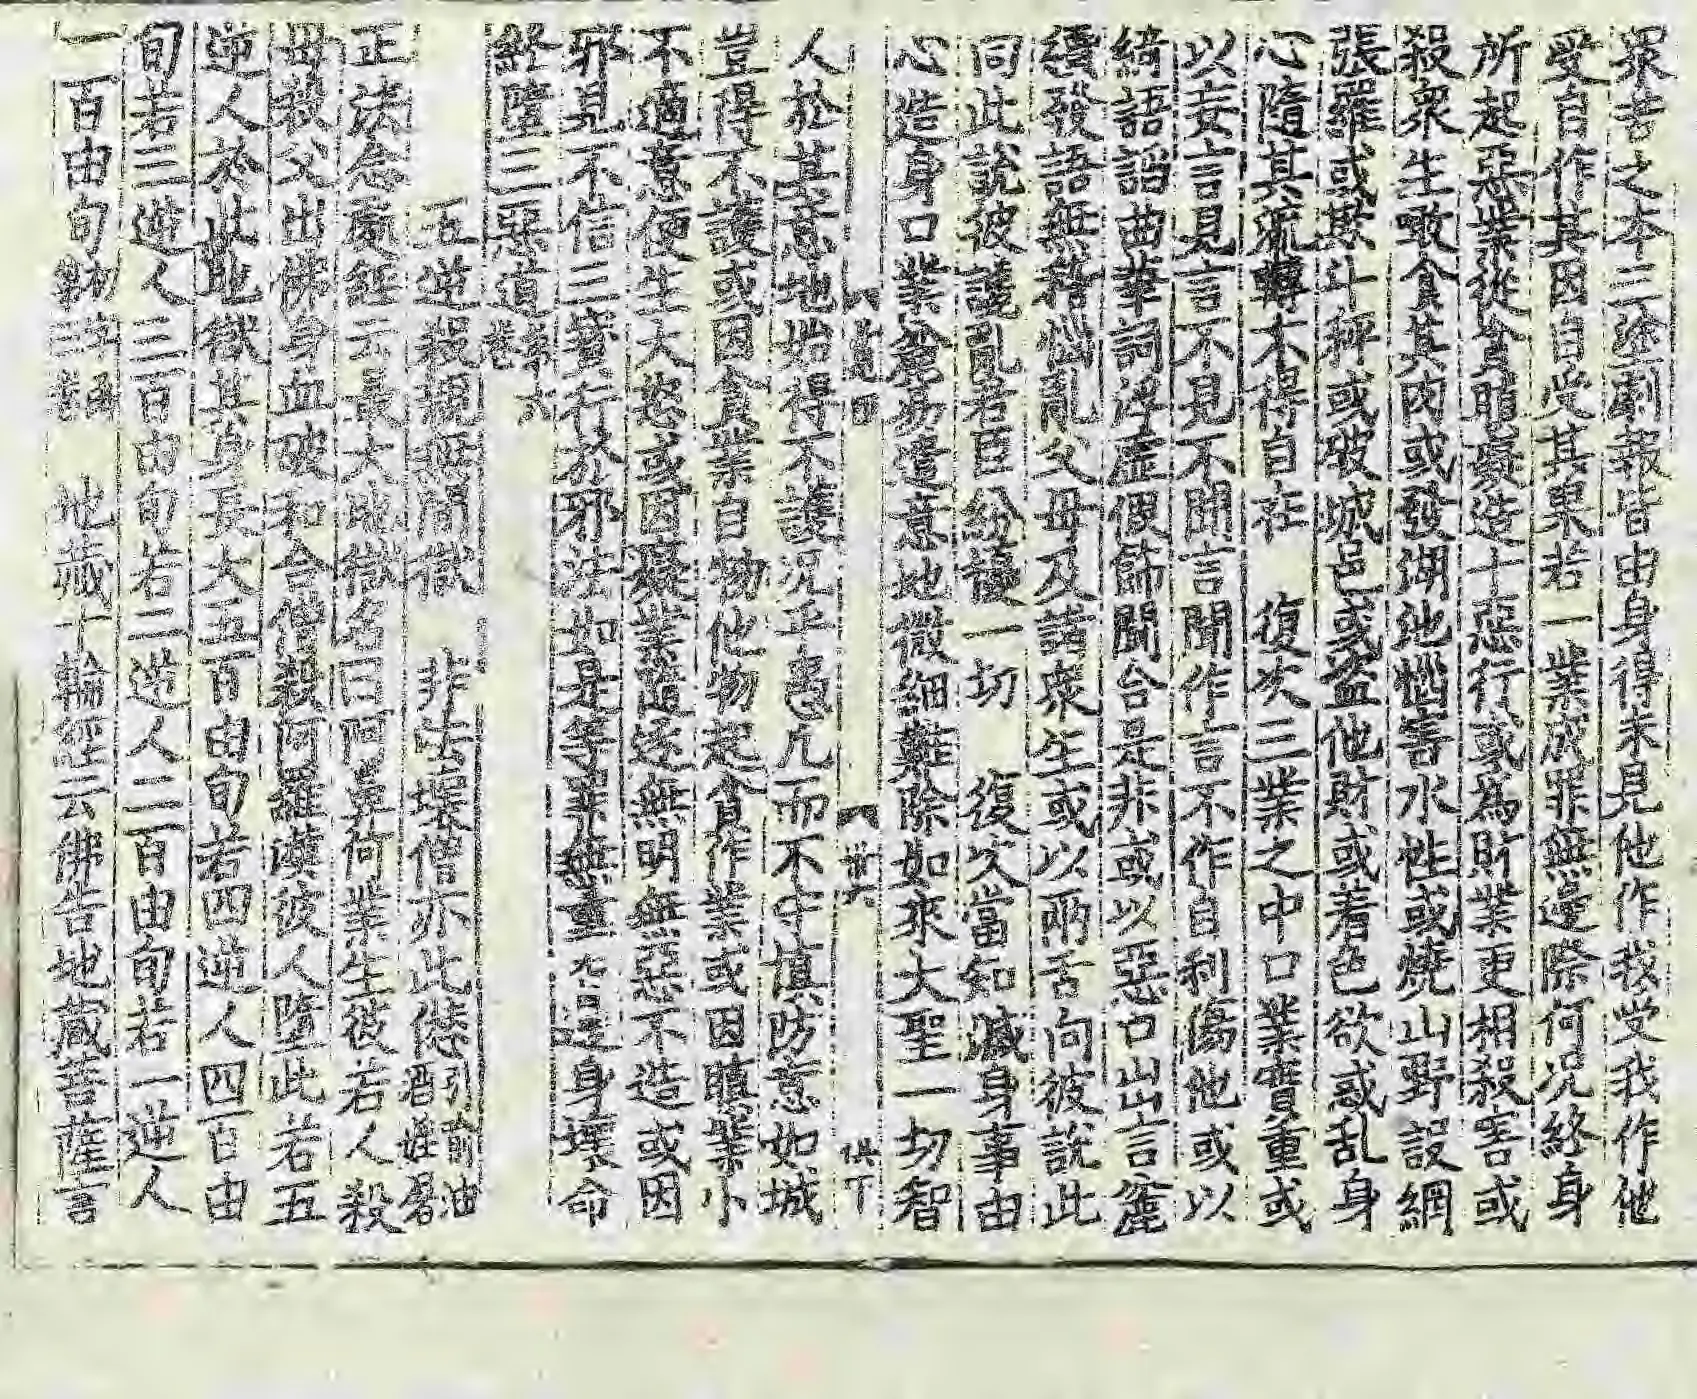 眾苦之本三塗劇報皆由身得未見他作我受我作他
受自作其因自受其果若一業成罪無邊際何況終身
所起惡業從貪瞋癡造十惡行或為財業更相殺害或
殺眾生噉食其肉或發湖池惱害水性或燒山野設網
張羅或欺斗秤或破城邑或盜他財或著色欲或乱身
心隨其流轉不得自在 復次三業之中口業實重或
以妄言見言不見不見言見不聞言聞作言不作自利傷他或以
綺語謟曲華詞浮虛假飾聞合是非或以惡口出言麤
獷發語無惱亂父母及諸眾生或以兩舌向彼說此
同此說彼讒亂君臣紛擾一切 復次當知滅身事由
心造身口業麤易遣意地微細難除如來大聖一切智
人於其意地始得不護況正愚凡而不守慎防意如城
豈得不護或因貪業自物他物起貪作業或因瞋業小
不適意便生大怒或因癡業隨逐無明無惡不造或因
邪見不信三寶行於邪法如是等罪無量身壞命
終墮三惡道
五逆殺親無間獄 非法壞僧亦此懲
正法念處經云最大地獄名曰阿鼻何業生彼若人殺
母殺父出佛身血破和合僧殺阿羅漢彼人墮此若五
逆人於此獄其身長大五百由旬若四逆人四百由
旬若三逆人三百由旬若二逆人二百由旬若一逆人
一百由旬 地藏十輪經云佛告地蔵菩薩言